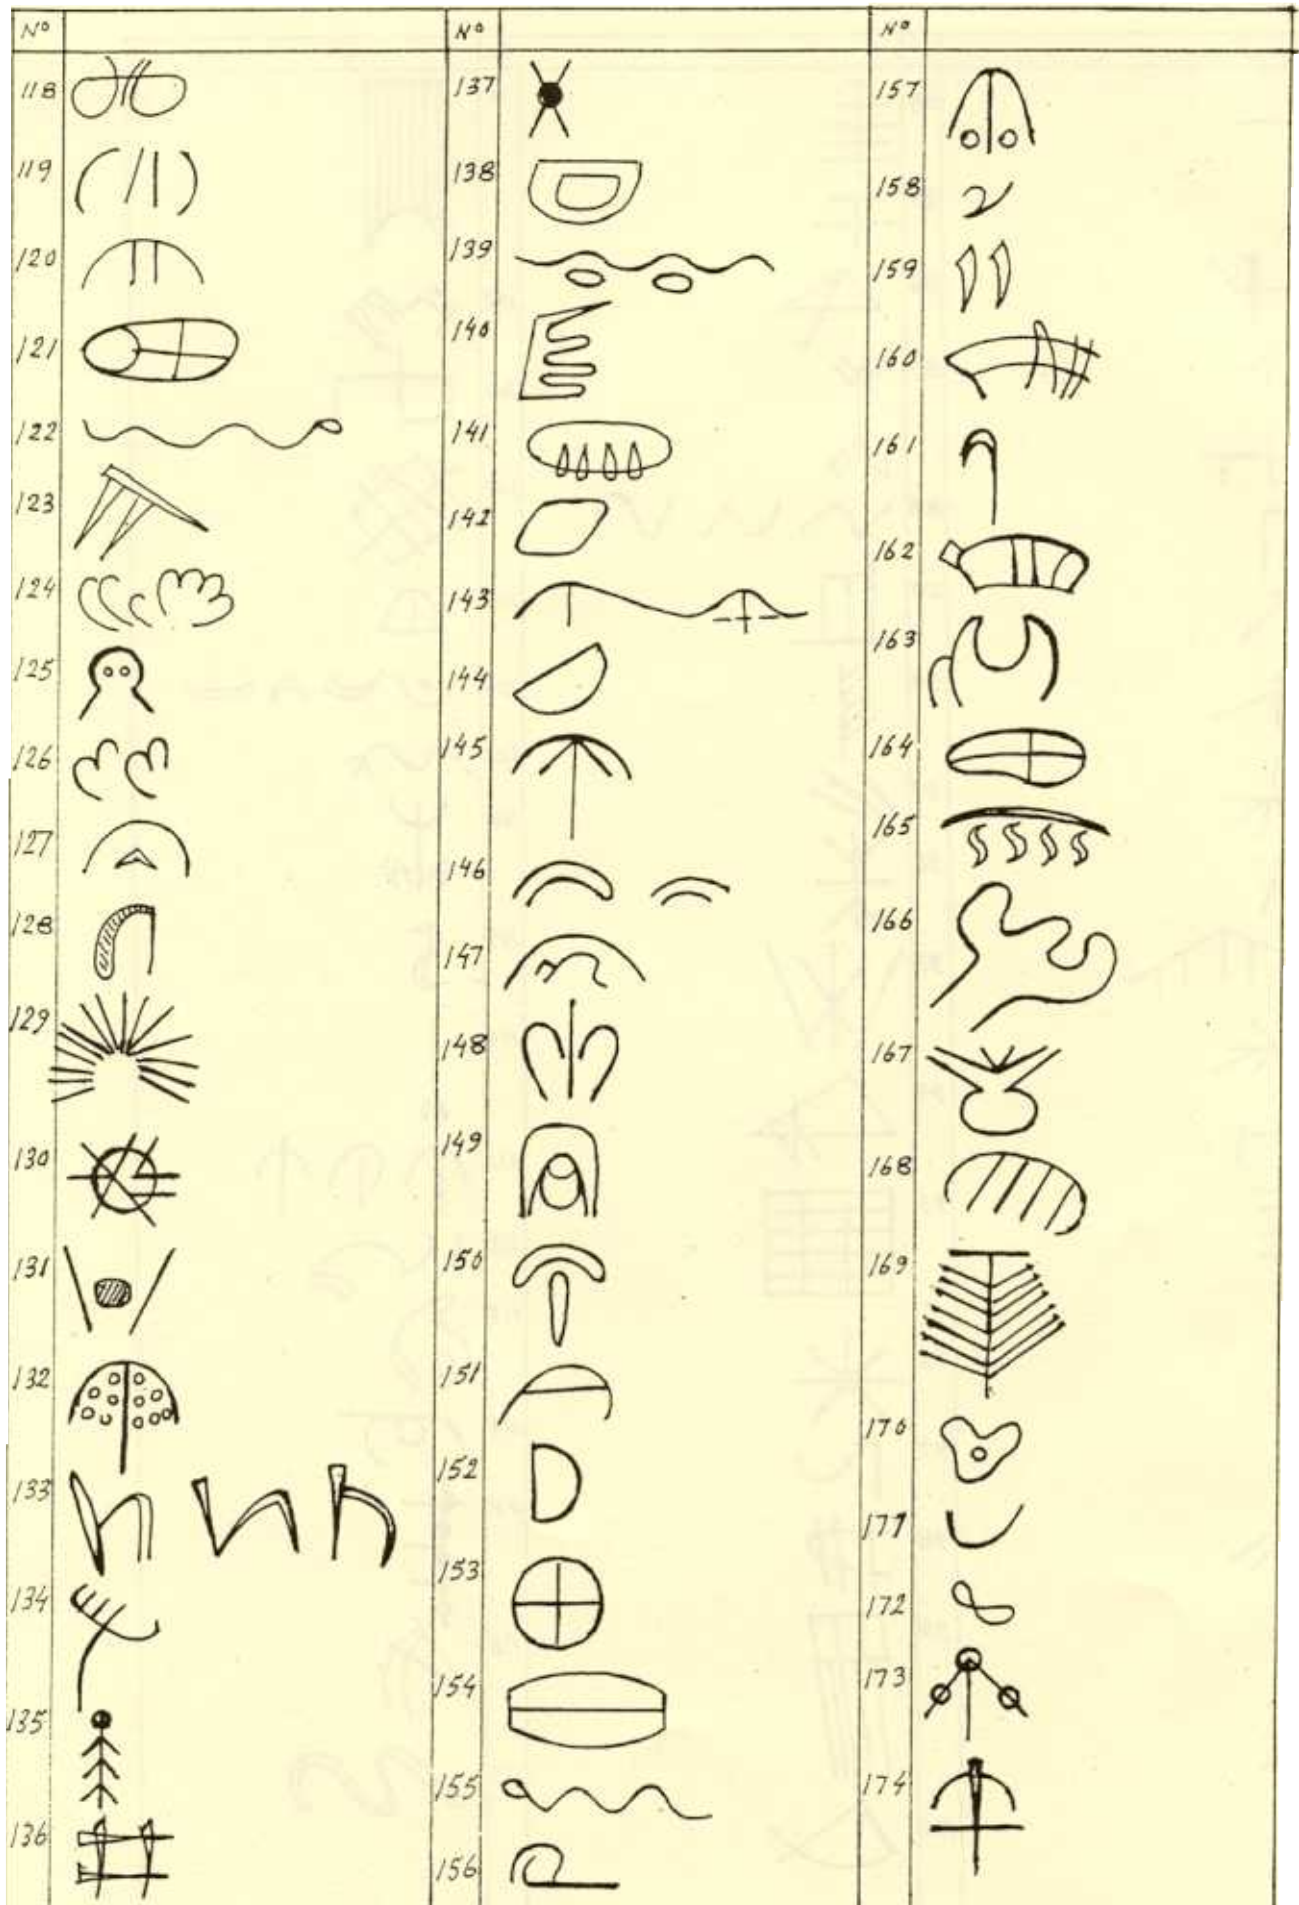 Nº
118
119
120
121
122
123
124
125
126
127
128
129
130
131
132
133
134
135
136
Nº
137
138
139
140
141
142
143
144
145
146
147
148
149
150
151
152
153
154
155
156
Nº
157
158
159
160
161
162
163
164
165
166
167
168
169
170
171
172
173
174